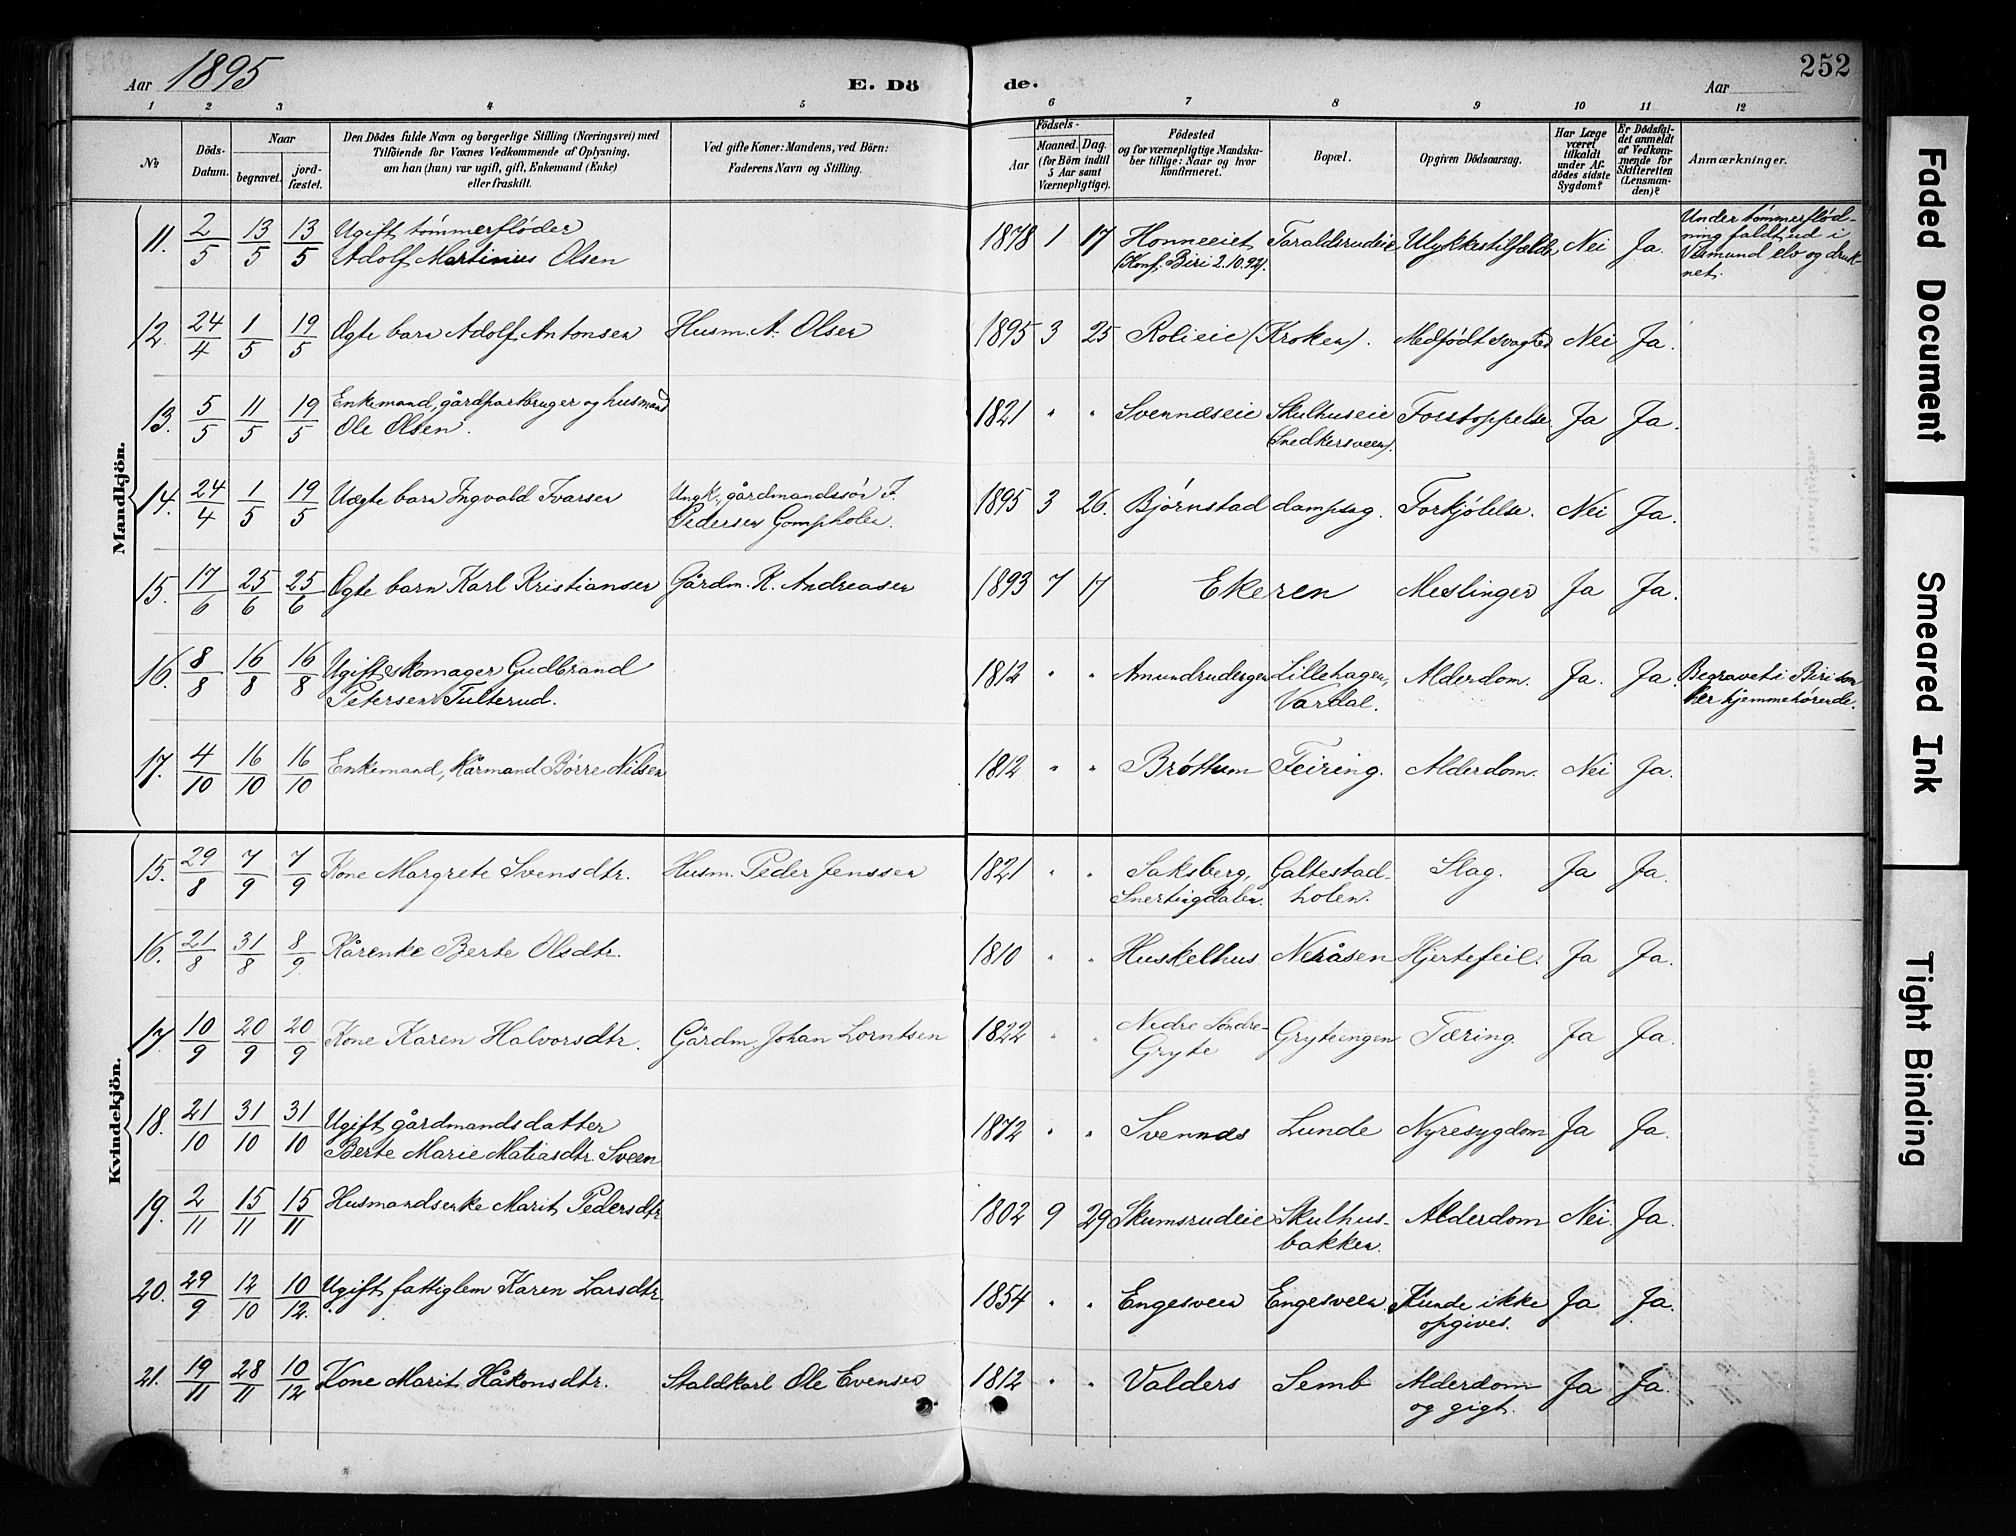 Aar 1895
E. Dö
de.
252
Aar
1 2 3 4 5 6 7 8 9 10 11 12
No
Döds-Datum.
Naar
begravet.
jord-fæstet.
Den Dödes fulde Navn og borgerlige Stilling (Næringsvei) med
Tilföiende for Voxnes Vedkommende af Oplysning,
om han (hun) var ugift, gift, Enkemand (Enke)
eller fraskilt.
Ved gifte Koner: Mandens, ved Börn:
Faderens Navn og Stilling.
Födsels-
Aar
Maaned. Dag.
(for Börn indtil
5 Aar samt
Værnepligtige).
Födested
og for værnepligtige Mandska-
ber tillige: Naar og hvor
konfirmeret.
Bopæl.
Opgiven Dödsaarsag.
Har Læge
været
tilkaldt
under Af-
dödes sidste
Sygdom?
Er Dödsfal-
det anmeldt
af Vedkom-
mende for
Skifteretten
(Lensman-
den)?
Anmærkninger.
Mandkjön.
11. 2/5 13/5 13/5 Ugift tømmerfløder
Adolf Martinius Olsen
1878 1 17 Honneeiet
(Konf. Biri 2.10.92).
Taraldsrudeie Ulykkestilfælde Nei Ja.
Under tømmerflød-
ning faldt ud i
Vismund elv og druk-
net.
12. 24/4 1/5 19/5 Ægte barn Adolf Antonsen Husm. A. Olsen 1895 3 25 Rolieie (Kroken). Medfødt svaghed Nei Ja.
13. 5/5 11/5 19/5 Enkemand, gårdparkbruger og husmand
Ole Olsen.
1821 " " Svennæseie Skulhuseie
(Snedkersveen).
Forstoppelse Ja Ja.
14. 24/4 1/5 19/5 Uægte barn Ingvald Ivarsen Ungk., gårdmandssøn I.
Pedersen Gompholen.
1895 3 26. Bjørnstad dampsag. Forkjølelse. Nei Ja.
15. 17/6 25/6 25/6 Ægte barn Karl Kristiansen Gårdm. K. Andreasen 1893 7 17 Ekeren Meslinger Ja Ja.
16. 8/8 16/8 16/8 Ugift skomager Gudbrand
Petersen Tulterud.
1812 " " Amundrudengen Lillehagen,
Vardal.
Alderdom. Ja. Ja.
Begravet i Biri som
her hjemmehørende.
17. 4/10 16/10 16/10 Enkemand, kårmand Børre Nilsen 1812 " " Brøttum Feiring. Alderdom. Nei Ja.
Kvindekjön.
15. 29/8 7/9 7/9 Kone Margrete Svensdtr. Husm. Peder Jenssen 1821 " " Saksberg,
Snertingdalen.
Galtestad-
holen.
Slag. Ja Ja.
16. 21/8 31/8 8/9 Kårenke Berte Olsdtr. 1810 " " Huskelhus Neråsen Hjertefeil. Ja Ja.
17. 10/9 20/9 20/9 Kone Karen Halvorsdtr. Gårdm. Johan Lorntsen 1822 " " Nedre Søndre-
Gryte
Gryteengen Tæring. Ja Ja.
18. 21/10 31/10 31/10 Ugift gårdmandsdatter
Berte Marie Matiasdtr. Sveen
1872 " " Svennæs Lunde Nyresygdom Ja Ja.
19. 2/11 15/11 15/11 Husmandsenke Marit Pedersdtr 1802 9 29 Skumsrudeie Skulhus-
bakken.
Alderdom Nei. Ja.
20. 29/9 12/10 10/12. Ugift fattiglem Karen Larsdtr. 1854 " " Engesveen Engesveen Kunde ikke
opgives.
Ja Ja.
21. 19/11 28/11 10/12 Kone Marit Håkonsdtr. Staldkarl Ole Evensen 1812 " " Valders Semb Alderdom
og gigt.
Ja Ja.
Faded Document
Smeared Ink
Tight Binding